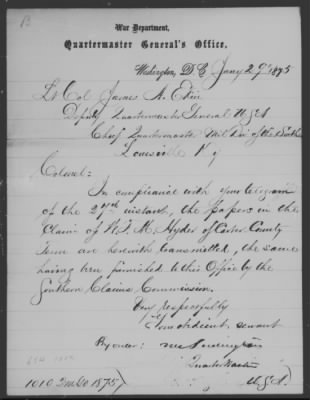 B
War Department,
Quartermaster General's Office,
Washington, D.C. Jany 29th 1875
Lt Col James A. Ekin
Deputy Quartermaster General U.S.A
Chief Quartermaster Mil Div of the South
Louisville Ky
Colonel:
In compliance with your telegram
of the instant, the papers in the
Claim of M. Hyder of Carter County
Tenn are herewith transmitted, the same
having been furnished to this Office by the
Southern Claims Commission.
Very respectfully
Your obedient servant
By order:
Quartermaster
U.S.A.
1010 1875)